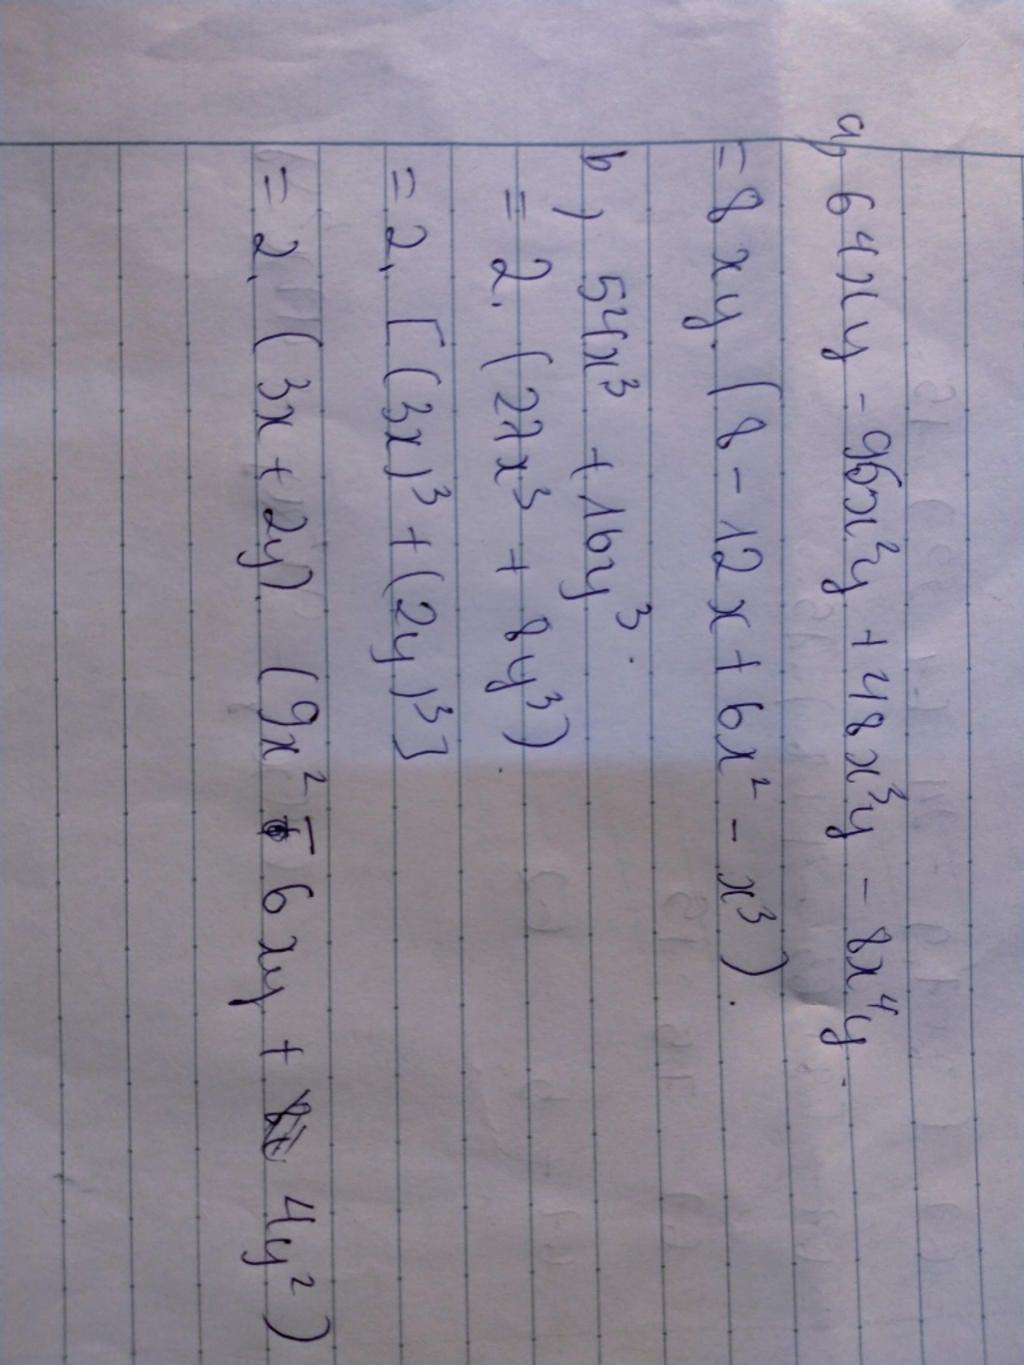 a, 64xy - 96x²y + 48x³y - 8x⁴y.
= 8xy. (8 - 12x + 6x² - x³).
b, 54x³ + 16y³.
= 2. (27x³ + 8y³)
= 2. [(3x)³ + (2y)³]
= 2. (3x + 2y). (9x² - 6xy + 4y²)